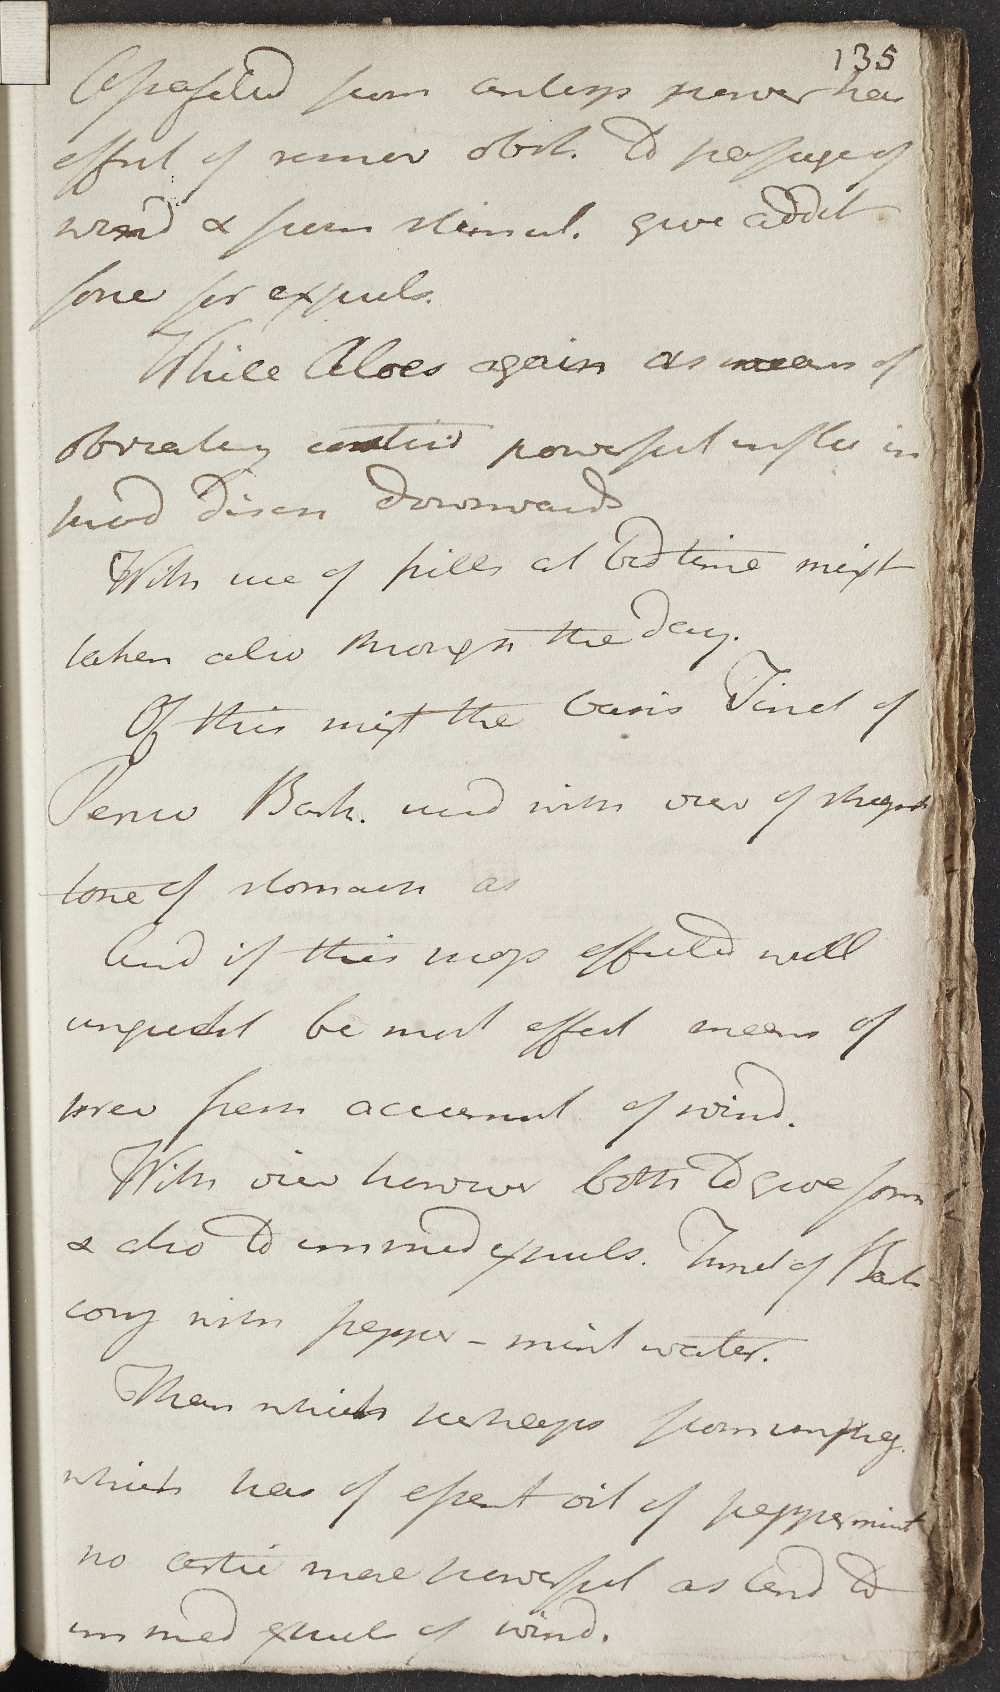 135
Assafetid from antisps power has
effect of remov obst. to passage of
wind & from stimul. give addit
force for expuls.
While Aloes again as means of
obviating costive powerful influ in
med discn downwards
With use of pills at bedtime mixt
taken also through the day.
Of this mixt the basis Tinct of
Peruv Bark. used with view of strength
tone of stomach as
And if this mops effected will
unquest be most effect means of
prev from accumul of wind.
With view however both to give form
& also to immed expuls. Tinct of Bark
conj with pepper-mint water.
Than which perhaps from impreg.
which has of essent oil of peppermint
no article more powerful as tend to
immed expuls of wind.